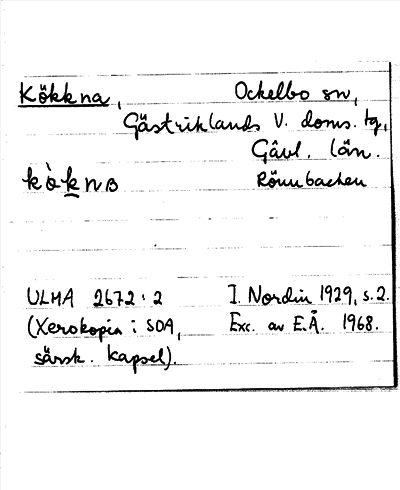 Kökkna, Ockelbo sn,
Gästriklands V. doms. tg,
Gävl. län.
Rönnbacken
ULMA 2672:2 I. Nordin 1929, s. 2.
(Xerokopia i SOA, Exc. av E.Å. 1968.
särsk. kapsel).